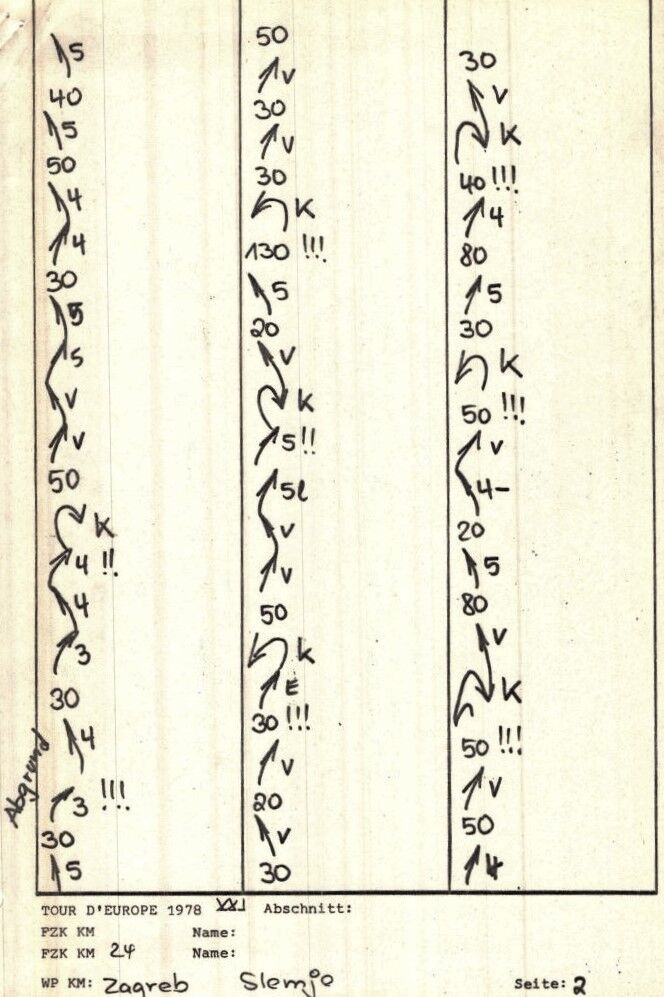 5
40
5
50
4
4
30
5
5
V
V
50
K
4 !!
4
3
30
4
Abgrund
3 !!!
30
5
50
V
30
V
30
K
130 !!!
5
20
V
K
5!!
5l
V
V
50
K
E
30 !!!
V
20
V
30
30
V
K
40 !!!
4
80
5
30
K
50 !!!
V
4-
20
5
80
V
K
50 !!!
V
50
4
TOUR D'EUROPE 1978 XXI Abschnitt:
FZK KM Name:
FZK KM 24 Name:
WP KM: Zagreb Slemje Seite: 2